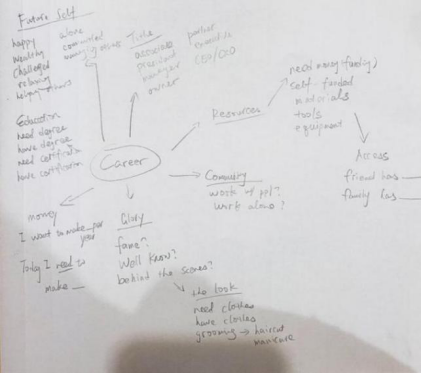 Future Self
happy
wealthy
challenged
relaxing
helping others
alone
committed
managing others
Title
associate
president
manager
owner
partner
executive
CEO/COO
Resources
need money funding
self-funded
materials
tools
equipment
Access
friend has
family has
Education
need degree
have degree
need certification
have certification
Career
Community
work w/ ppl?
work alone?
money
I want to make _ per
year
Today I need to
make _
Glory
fame?
Well Know?
behind the scenes?
the look
need clothes
have clothes
grooming → haircut
manicure